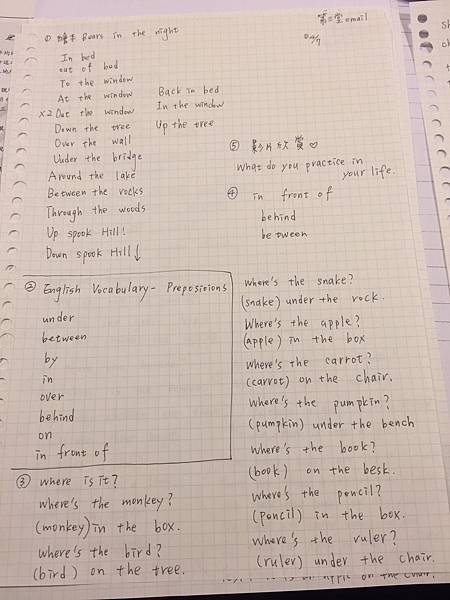 第三堂 email
① 繪本 Bears in the night
In bed
out of bed
To the window
At the window
x2 Out the window
Down the tree
Over the wall
Under the bridge
Around the lake
Between the rocks
Through the woods
Up spook Hill!
Down spook Hill↓
Back in bed
In the window
Up the tree
⑤ 影片欣賞♡
What do you practice in
your life.
④ in front of
behind
between
② English Vocabulary- Prepositions
under
between
by
in
over
behind
on
in front of
③ where is it?
where's the monkey?
(monkey) in the box.
where's the bird?
(bird) on the tree.
where's the snake?
(snake) under the rock.
Where's the apple?
(apple) in the box
where's the carrot?
(carrot) on the chair.
where's the pumpkin?
(pumpkin) under the bench
where's the book?
(book) on the besk.
where's the pencil?
(pencil) in the box.
where's the ruler?
(ruler) under the chair.